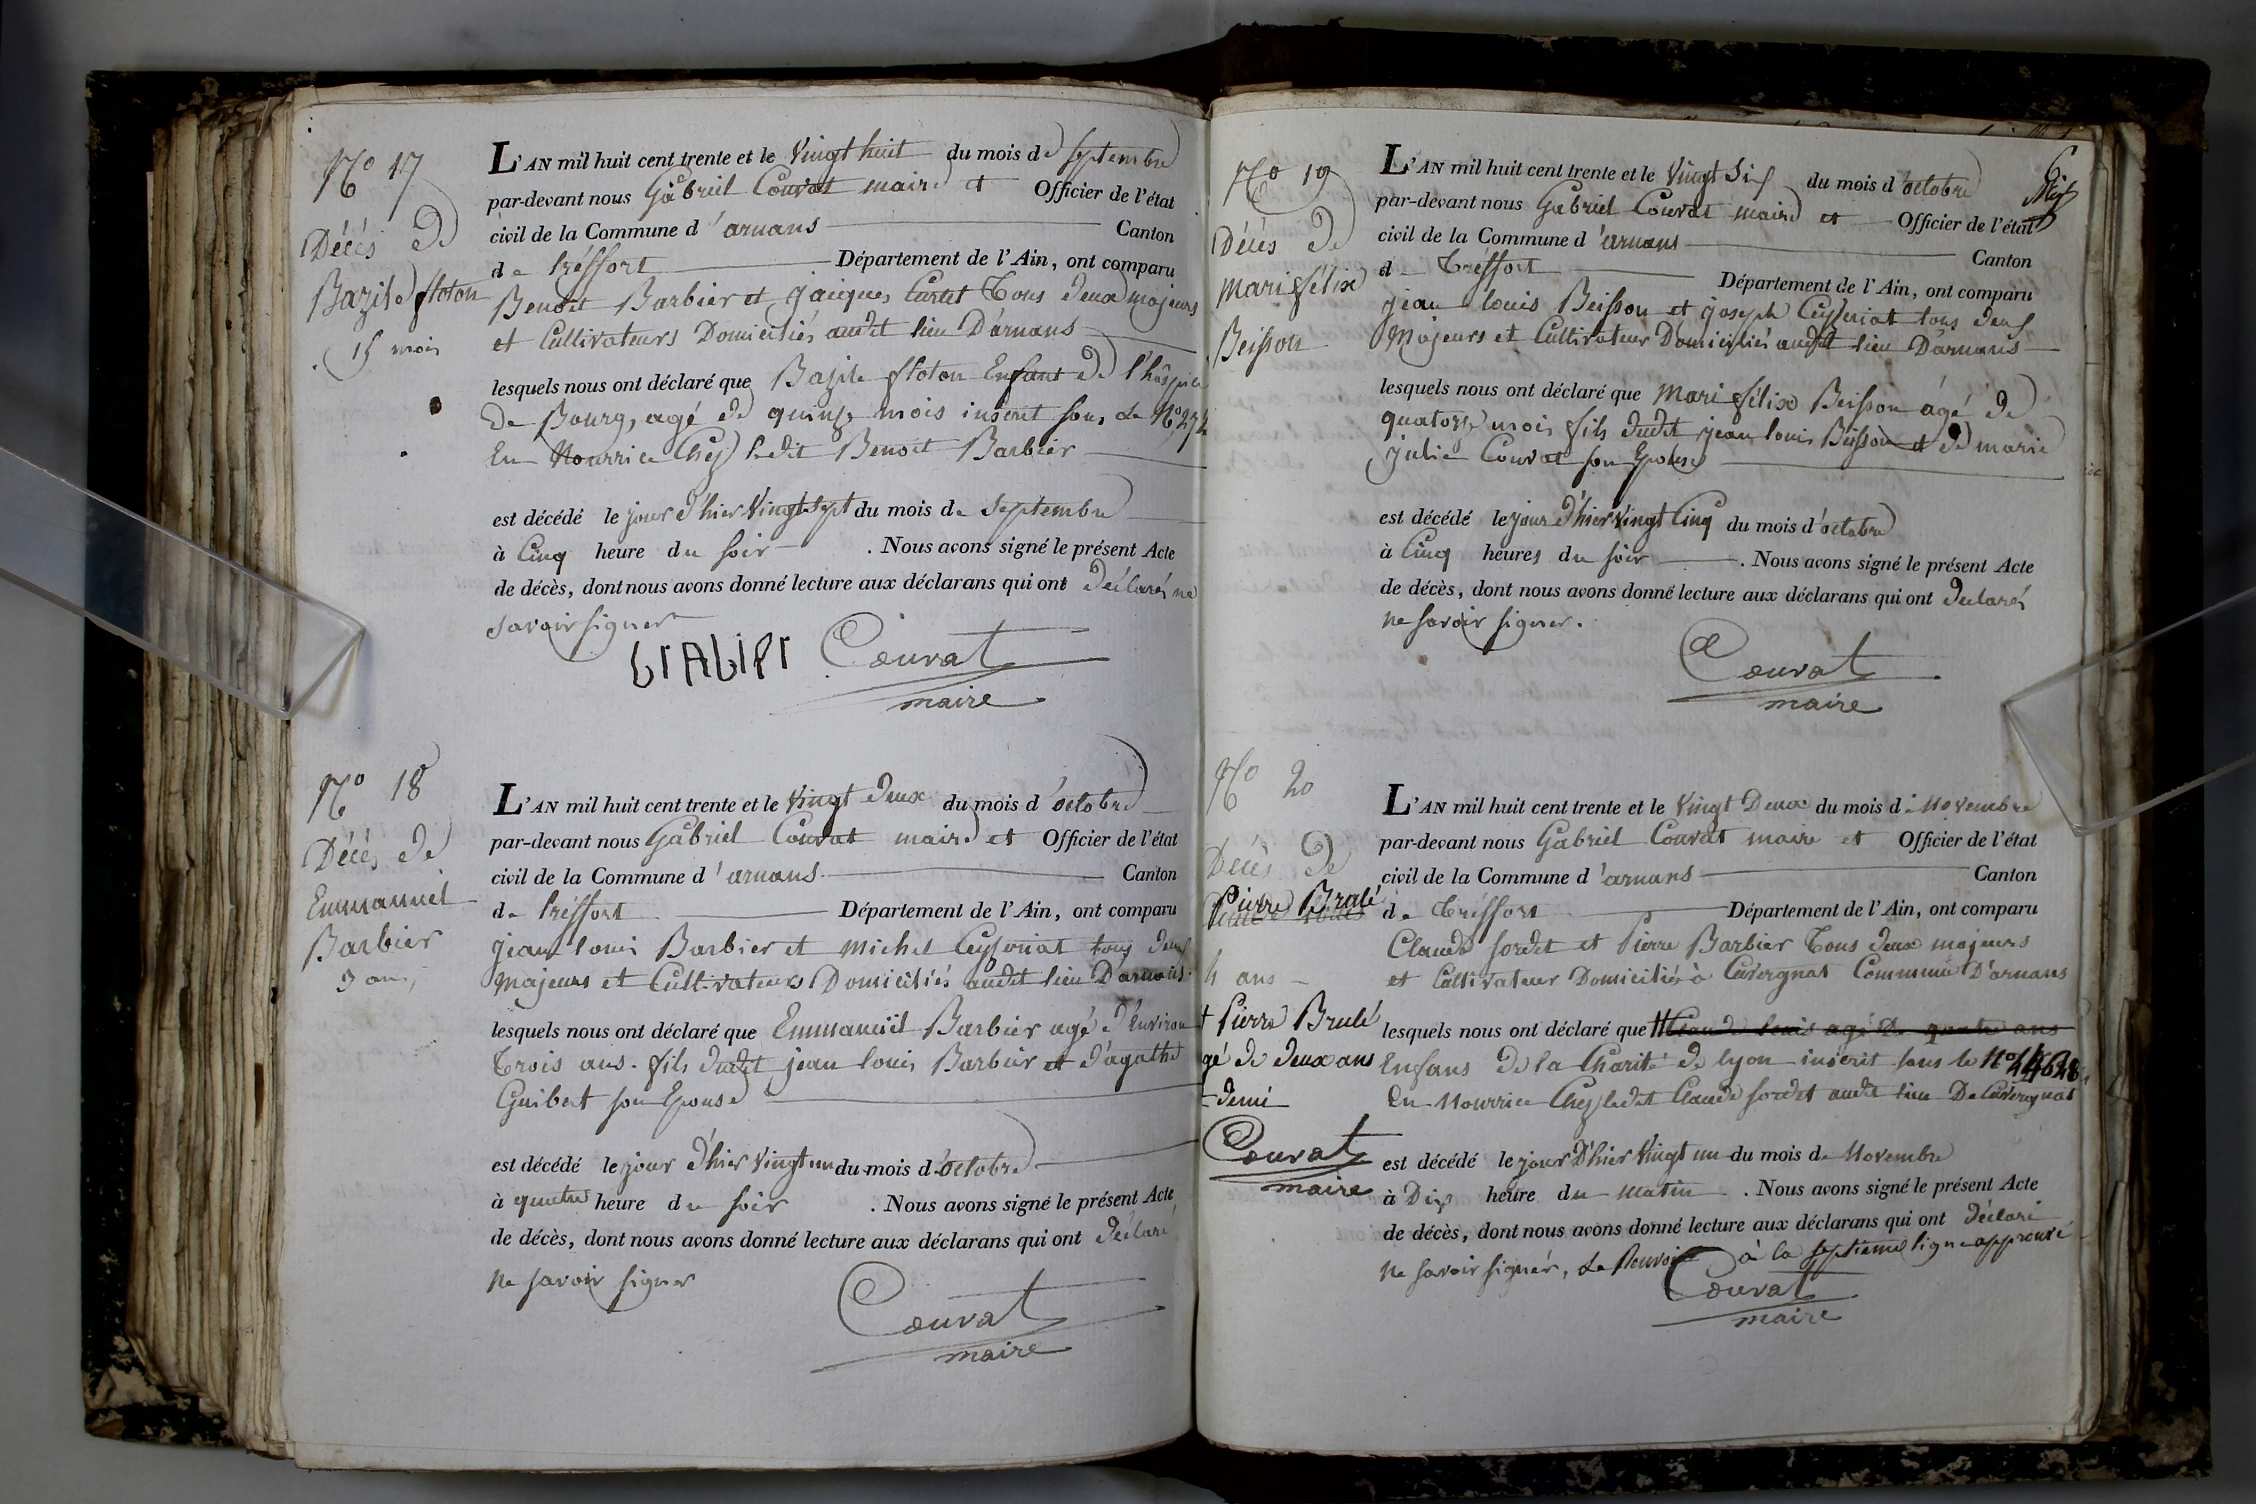 N.o 17
Décès de
Bazile floton
15 mois
L'AN mil huit cent trente et le Vingt huit du mois de Septembre
par-devant nous Gabriel Couvat maire et Officier de l'état
civil de la Commune d'arnans Canton
de tréffort Département de l'Ain, ont comparu
Benoit Barbier et jacques Curtet Tous deux majeurs
et Cultivateurs Domiciliés audit lieu D'arnans
lesquels nous ont déclaré que Bazile floton Enfant de l'hospice
De Bourg, agé de quinze mois inscrit sous le N.o 274
En Nourrice Chez ledit Benoit Barbier
est décédé le jour d'hier Vingt sept du mois de Septembre
à Cinq heure du soir . Nous avons signé le présent Acte
de décès, dont nous avons donné lecture aux déclarans qui ont déclarés ne
savoir signer
Couvat
maire
N.o 18
Décès de
Emmanuel
Barbier
3 ans
L'AN mil huit cent trente et le Vingt deux du mois d'octobre
par-devant nous Gabriel Couvat maire et Officier de l'état
civil de la Commune d'arnans Canton
de tréffort Département de l'Ain, ont comparu
jean louis Barbier et Michel Ceyseriat tous deux
Majeurs et Cultivateurs Domiciliés audit lieu D'arnans
lesquels nous ont déclaré que Emmanuel Barbier agé d'Environ
Trois ans. fils dudit jean louis Barbier et d'agathe
Guibert son Epouse
est décédé le jour d'hier Vingt un du mois d'octobre
à quatre heure du soir . Nous avons signé le présent Acte
de décès, dont nous avons donné lecture aux déclarans qui ont déclaré
ne savoir signer
Couvat
maire
N.o 19
Décès de
Mari félix
Beisson
Six
L'AN mil huit cent trente et le Vingt Six du mois d'octobre
par-devant nous Gabriel Couvat maire et Officier de l'état
civil de la Commune d'arnans Canton
de Tréffort Département de l'Ain, ont comparu
jean louis Beisson et joseph Ceyseriat tous deux
Majeurs et Cultivateur Domiciliés audit lieu D'arnans
lesquels nous ont déclaré que Mari félix Beisson âgé de
quatorze mois fils dudit jean louis Beisson et de marie
julie Couvat son Epouse
est décédé le jour d'hier Vingt Cinq du mois d'octobre
à Cinq heures du soir . Nous avons signé le présent Acte
de décès, dont nous avons donné lecture aux déclarans qui ont déclarés
ne savoir signer.
Couvat
maire
N.o 20
Décès de
Pierre Brulé
4 ans
Pierre Brulé
gé de deux ans
demi
Couvat
maire
L'AN mil huit cent trente et le Vingt Deux du mois de Novembre
par-devant nous Gabriel Couvat maire et Officier de l'état
civil de la Commune d'arnans Canton
de Tréffort Département de l'Ain, ont comparu
Claude sordet et Pierre Barbier Tous deux majeurs
et Cultivateur Domiciliés à Cuvergnat Commune D'arnans
lesquels nous ont déclaré que Claude louis agé De quatre ans
Enfans de la Charité de lyon inscrit sous le N.o
En Nourrice Chez ledit Claude sordet audit lieu De Cuvergnat
est décédé le jour D'hier Vingt un du mois de Novembre
à Dix heure du Matin . Nous avons signé le présent Acte
de décès, dont nous avons donné lecture aux déclarans qui ont déclaré
ne savoir signér, Le Renvoi à la septieme ligne approuvé
Couvat
maire